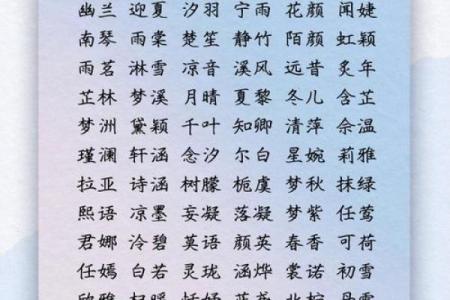 幽兰 迎夏 汐羽 宁雨 花颜 闻婕
南琴 雨棠 楚笙 静竹 陌颜 虹颖
雨茗 淋雪 凉音 溪风 远昔 炙年
芷林 梦溪 月晴 夏黎 冬儿 含芷
梦洲 黛颖 千叶 知卿 清萍 佘温
瑾澜 轩涵 念汐 尔白 星婉 莉雅
拉亚 诗涵 树朦 栀虞 梦秋 抹绿
熙语 凉墨 妄凝 落凝 梦紫 任莺
君娜 泠碧 英语 颜英 春香 可荷
任嫣 白若 灵珑 涵烨 裳诺 初雪